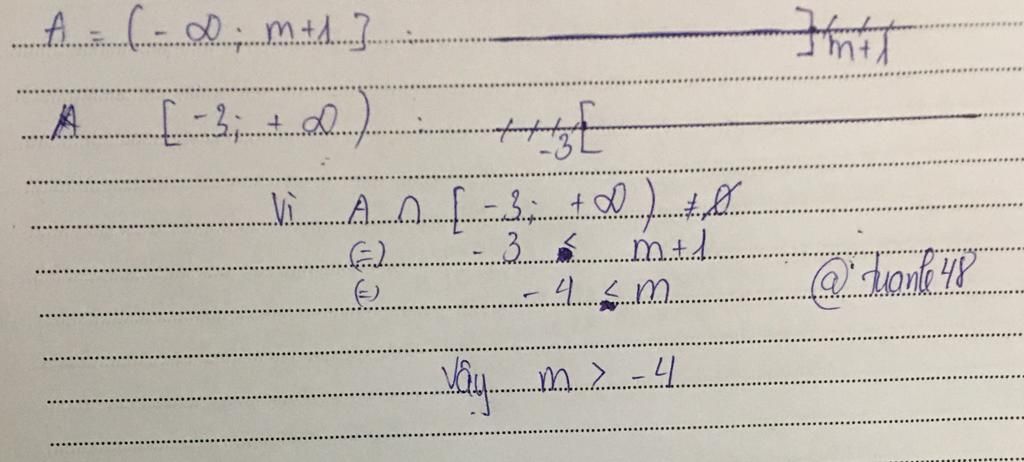 A = (-∞; m+1] : ] m+1
A [-3; +∞) : -3 [
Vì A ∩ [-3; +∞) ≠ ∅
(=) -3 ≤ m+1
(=) -4 ≤ m
@tuanle48
Vậy m > -4